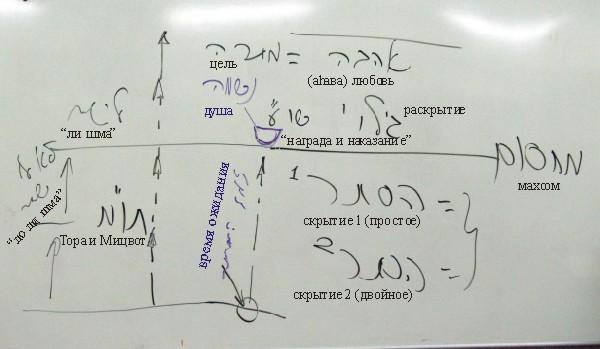 מטרה = אהבה
цель
(ahава) любовь
נשמה
душа
לשמה
“ли шма”
גילוי שו"ע
раскрытие
“награда и наказание”
מחסום
махсом
לא
“ло ли шма”
תו"מ
Тора и Мицвот
время ожидания
1 הסתר =
скрытие 1 (простое)
2 הסתר =
скрытие 2 (двойное)